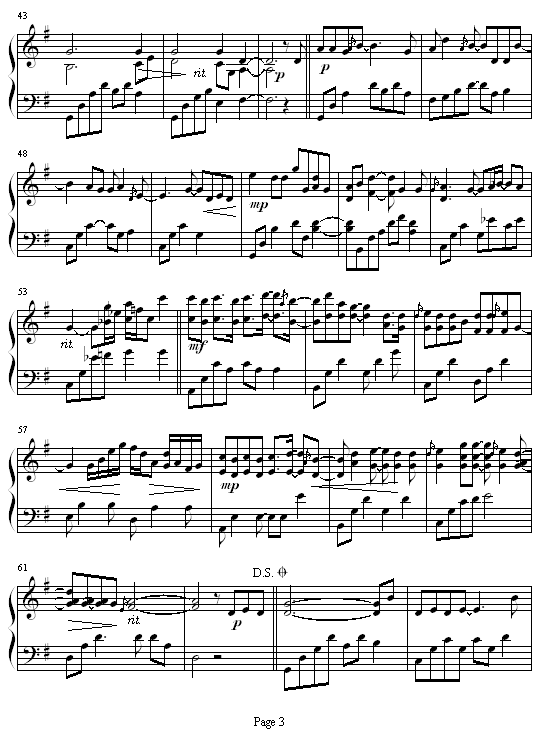 43
rit.
p
p
48
mp
53
rit.
mf
57
mp
D.S.
61
rit.
p
Page 3